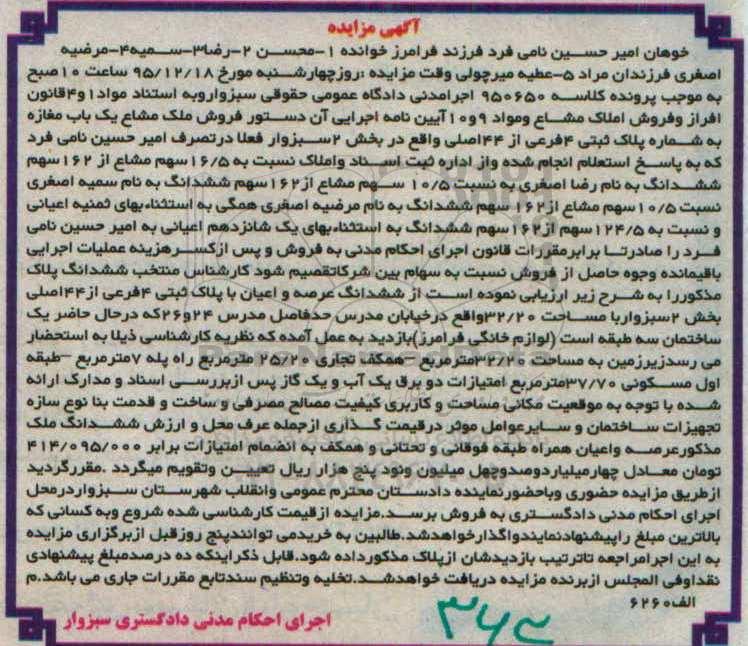 آگهی مزایده
خوهان امیر حسین نامی فرد فرزند فرامرز خوانده ۱-محسن ۲-رضا۳-سمیه۴-مرضیه
اصغری فرزندان مراد ۵-عطیه میرچولی وقت مزایده :روزچهارشنبه مورخ ۹۵/۱۲/۱۸ ساعت ۱۰صبح
به موجب پرونده کلاسه ۹۵۰۶۵۰ اجرامدنی دادگاه عمومی حقوقی سبزواروبه استناد مواد۱و۴قانون
افراز وفروش املاک مشاع ومواد ۹و۱۰آیین نامه اجرایی آن دستور فروش ملک مشاع یک باب مغازه
به شماره پلاک ثبتی ۴فرعی از ۴۴اصلی واقع در بخش ۲سبزوار فعلا درتصرف امیر حسین نامی فرد
که به پاسخ استعلام انجام شده واز اداره ثبت اسناد واملاک نسبت به ۱۶/۵سهم مشاع از ۱۶۲ سهم
ششدانگ به نام رضا اصغری به نسبت ۱۰/۵ سهم مشاع از۱۶۲سهم ششدانگ به نام سمیه اصغری
نسبت ۱۰/۵سهم مشاع از۱۶۲ سهم ششدانگ به نام مرضیه اصغری همگی به استثناءبهای ثمنیه اعیانی
و نسبت به ۱۲۴/۵سهم از۱۶۲سهم ششدانگ به استثناءبهای یک شانزدهم اعیانی به امیر حسین نامی
فرد را صادرتا برابرمقررات قانون اجرای احکام مدنی به فروش و پس ازکسرهزینه عملیات اجرایی
باقیمانده وجوه حاصل از فروش نسبت به سهام بین شرکاتقصیم شود کارشناس منتخب ششدانگ پلاک
مذکوررا به شرح زیر ارزیابی نموده است از ششدانگ عرصه و اعیان با پلاک ثبتی ۴فرعی از۴۴اصلی
بخش ۲سبزواربا مساحت ۳۲/۲۰واقع درخیابان مدرس حدفاصل مدرس ۲۴و۲۶که درحال حاضر یک
ساختمان سه طبقه است (لوازم خانگی فرامرز)بازدید به عمل آمده که نظریه کارشناسی ذیلا به استحضار
می رسدزیرزمین به مساحت ۳۲/۲۰مترمربع –همکف تجاری ۲۵/۲۰ مترمربع راه پله ۷مترمربع –طبقه
اول مسکونی ۳۷/۷۰مترمربع امتیازات دو برق یک آب و یک گاز پس ازبررسی اسناد و مدارک ارائه
شده با توجه به موقعیت مکانی مساحت و کاربری کیفیت مصالح مصرفی و ساخت و قدمت بنا نوع سازه
تجهیزات ساختمان و سایرعوامل موثر درقیمت گذاری ازجمله عرف محل و ارزش ششدانگ ملک
مذکورعرصه واعیان همراه طبقه فوقانی و تحتانی و همکف به انضمام امتیازات برابر ۴۱۴/۰۹۵/۰۰۰
تومان معادل چهارمیلیاردوصدوچهل میلیون ونود پنج هزار ریال تعیین وتقویم میگردد .مقررگردید
ازطریق مزایده حضوری وباحضورنماینده دادستان محترم عمومی وانقلاب شهرستان سبزواردرمحل
اجرای احکام مدنی دادگستری به فروش برسد.مزایده ازقیمت کارشناسی شده شروع وبه کسانی که
بالاترین مبلغ راپیشنهادنمایندواگذارخواهدشد.طالبین به خریدمی توانندپنج روزقبل ازبرگزاری مزایده
به این اجرامراجعه تاترتیب بازدیدشان ازپلاک مذکورداده شود.قابل ذکراینکه ده درصدمبلغ پیشنهادی
نقداوفی المجلس ازبرنده مزایده دریافت خواهدشد.تخلیه وتنظیم سندتابع مقررات جاری می باشد.م
الف۶۲۶۰
اجرای احکام مدنی دادگستری سبزوار